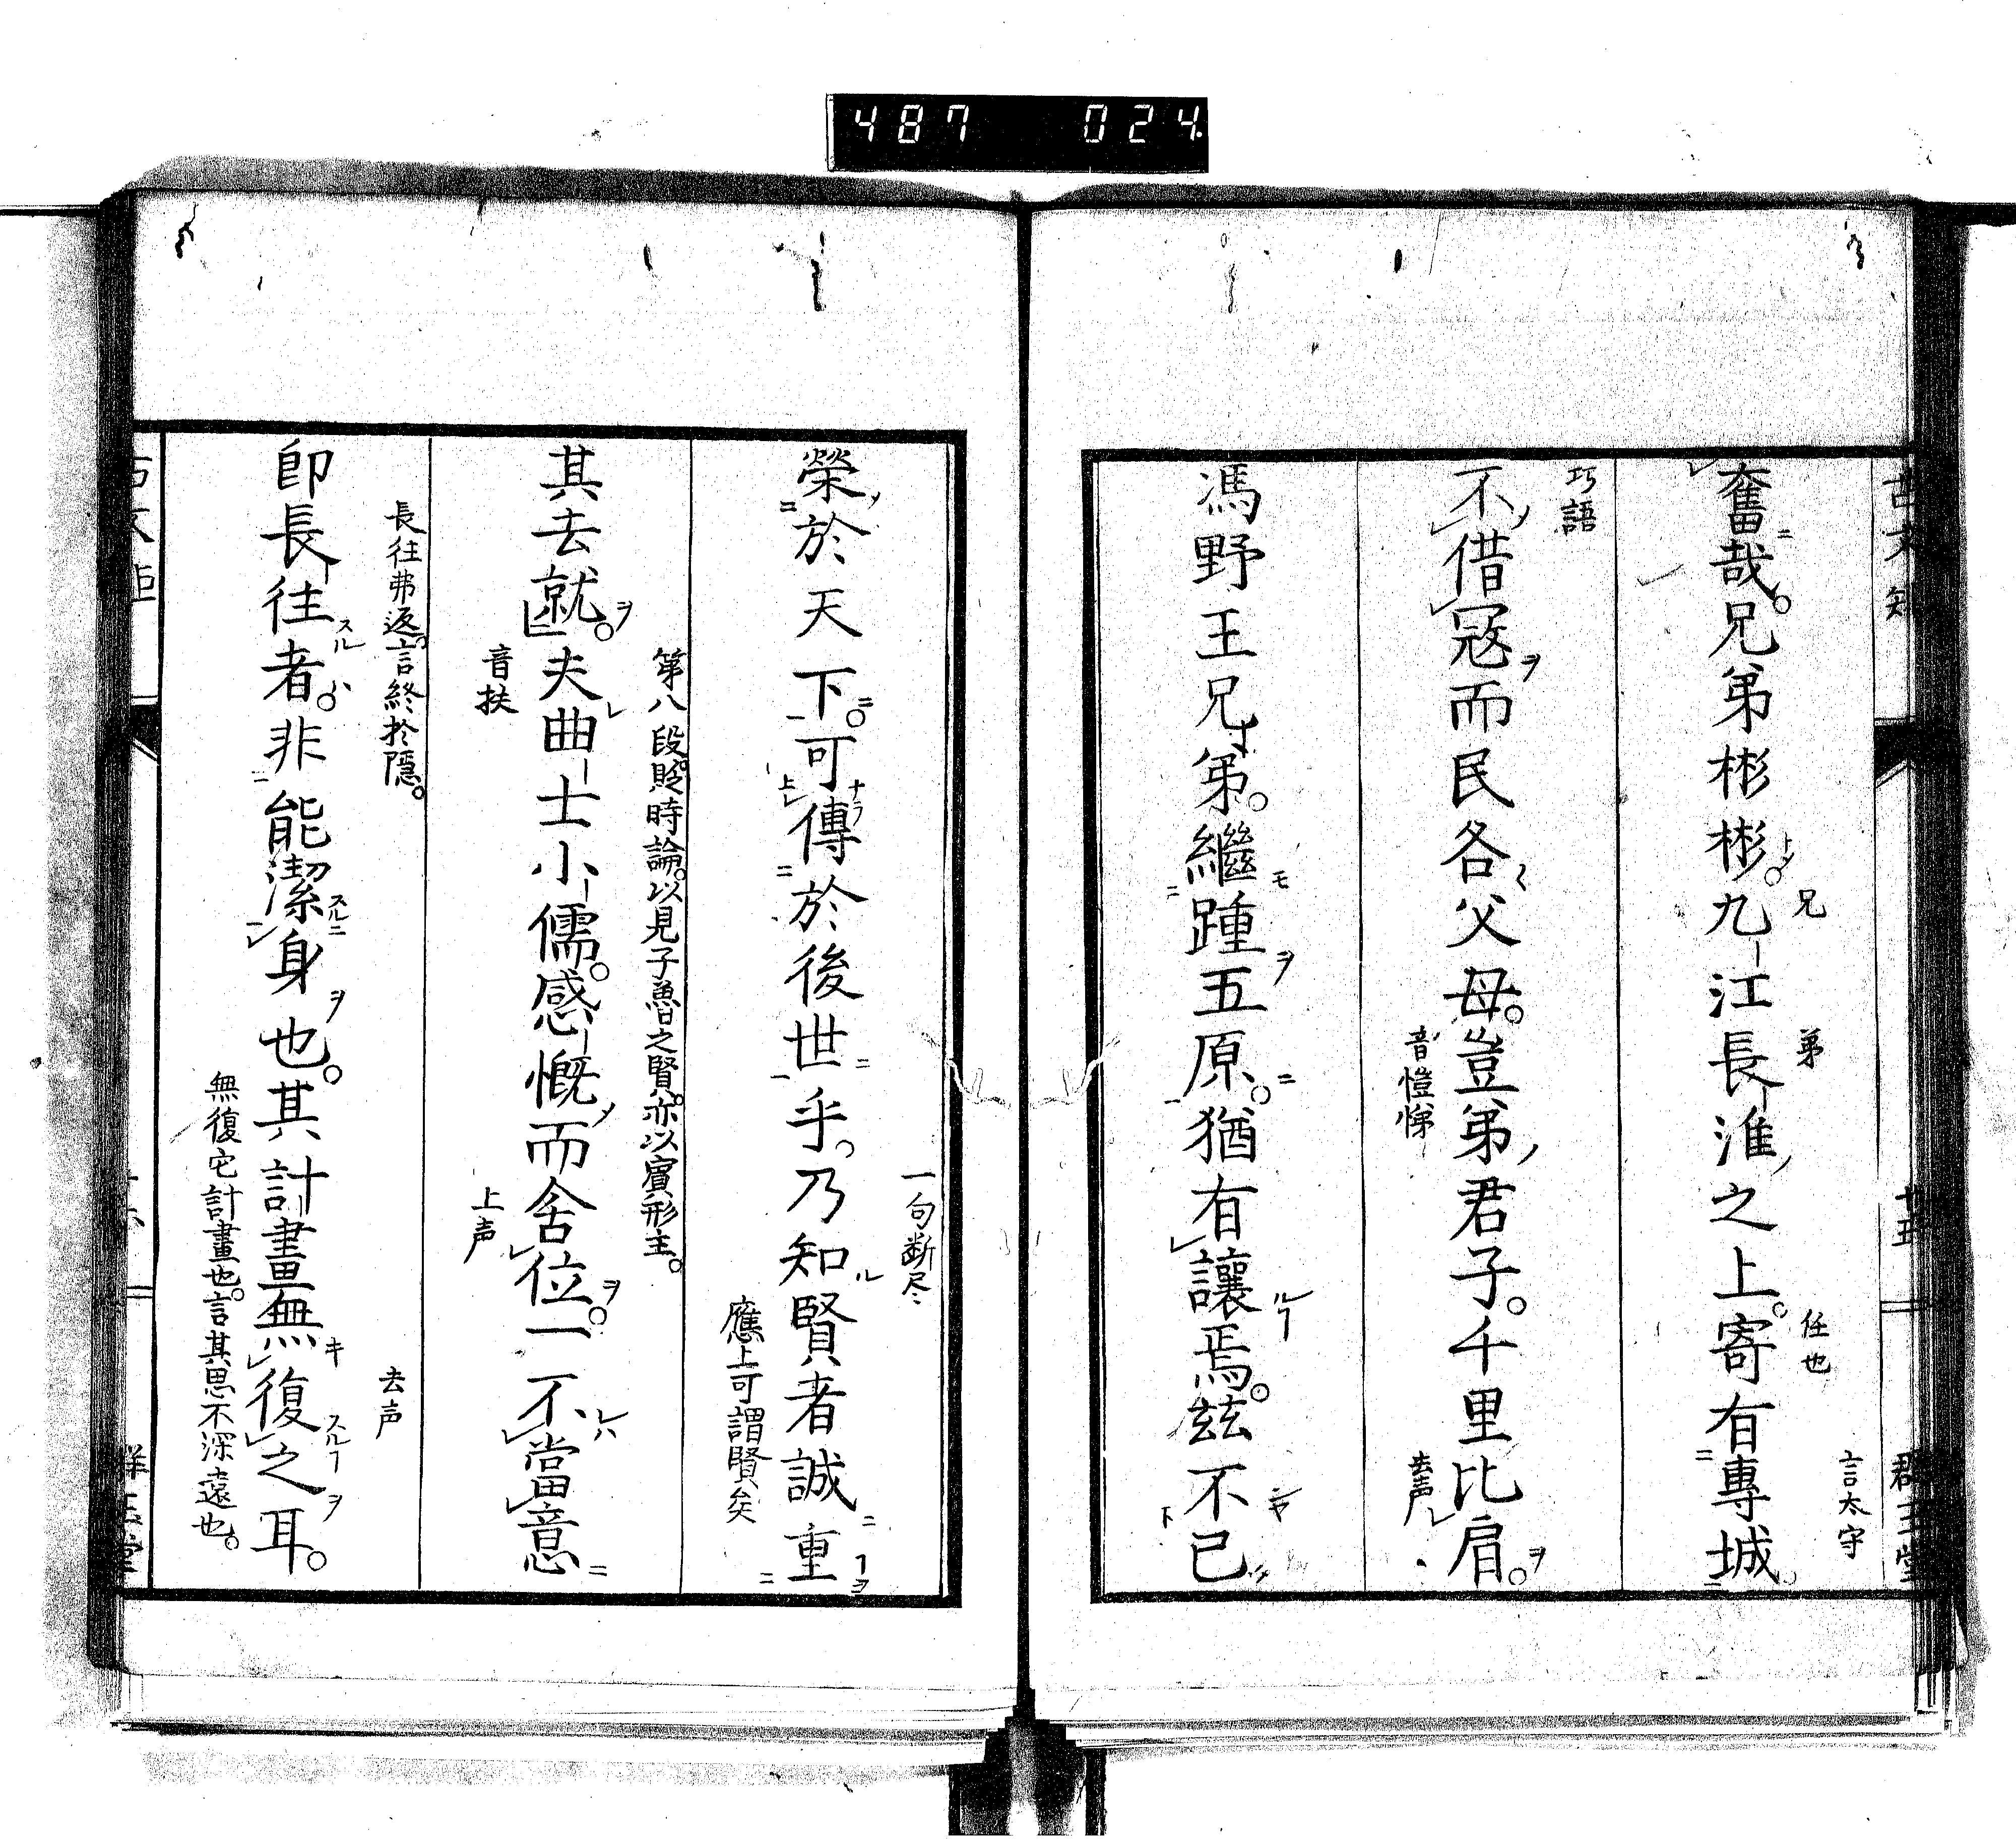 487 024
奮哉。兄弟彬彬。九江長淮之上。寄有專城
兄
弟
任也
言太守
巧語
不借寇而民各父母。豈弟君子。千里比肩。
音愷悌
去声
馮野王兄弟。繼踵五原。猶有讓焉。玆不已
一句断尽
榮於天下。可傳於後世乎。乃知賢者誠重
應上可謂賢矣
第八段。貶時論。以見子魯之賢。亦以賓形主。
其去就。夫曲士小儒。感慨而舍位。一不當意
音扶
上声
長往弗返。言終於隱。
去声
即長往者。非能潔身也。其計畫無復之耳。
無復它計畫也。言其思不深遠也。